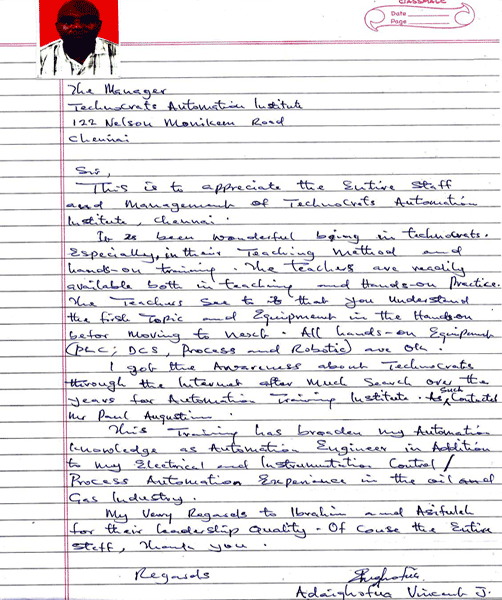 CLASSMATE
Date
Page
The Manager
Technocrats Automation Institute
122 Nelson Monikem Road
Chennai
Sir,
This is to appreciate the Entire Staff
and Management of Technocrats Automation
Institute, Chennai.
It is been wonderful being in technocrats.
Especially, in their Teaching Method and
hands-on training. The teachers are readily
available both in teaching and Hands-on Practice.
The Teachers See to it that you Understand
the first Topic and Equipment in the Handson
befor moving to next. All hands-on Equipment
(PLC; DCS, Process and Robotic) are Ok.
I got the Awareness about Technocrats
through the Internet after Much Search over the
years for Automation Training Institute. As Such Contacted
Mr Paul Augustin.
This Training has broaden my Automation
Knowledge as Automation Engineer in Addition
to my Electrical and Instrumentation Control/
Process Automation Experience in the oil and
Gas Industry.
My Very Regards to Ibrahim and Asifulah
for their Leadership Quality. Of Couse the Entire
Staff, Thank you.
Regards
Adaighofua Vincent J.